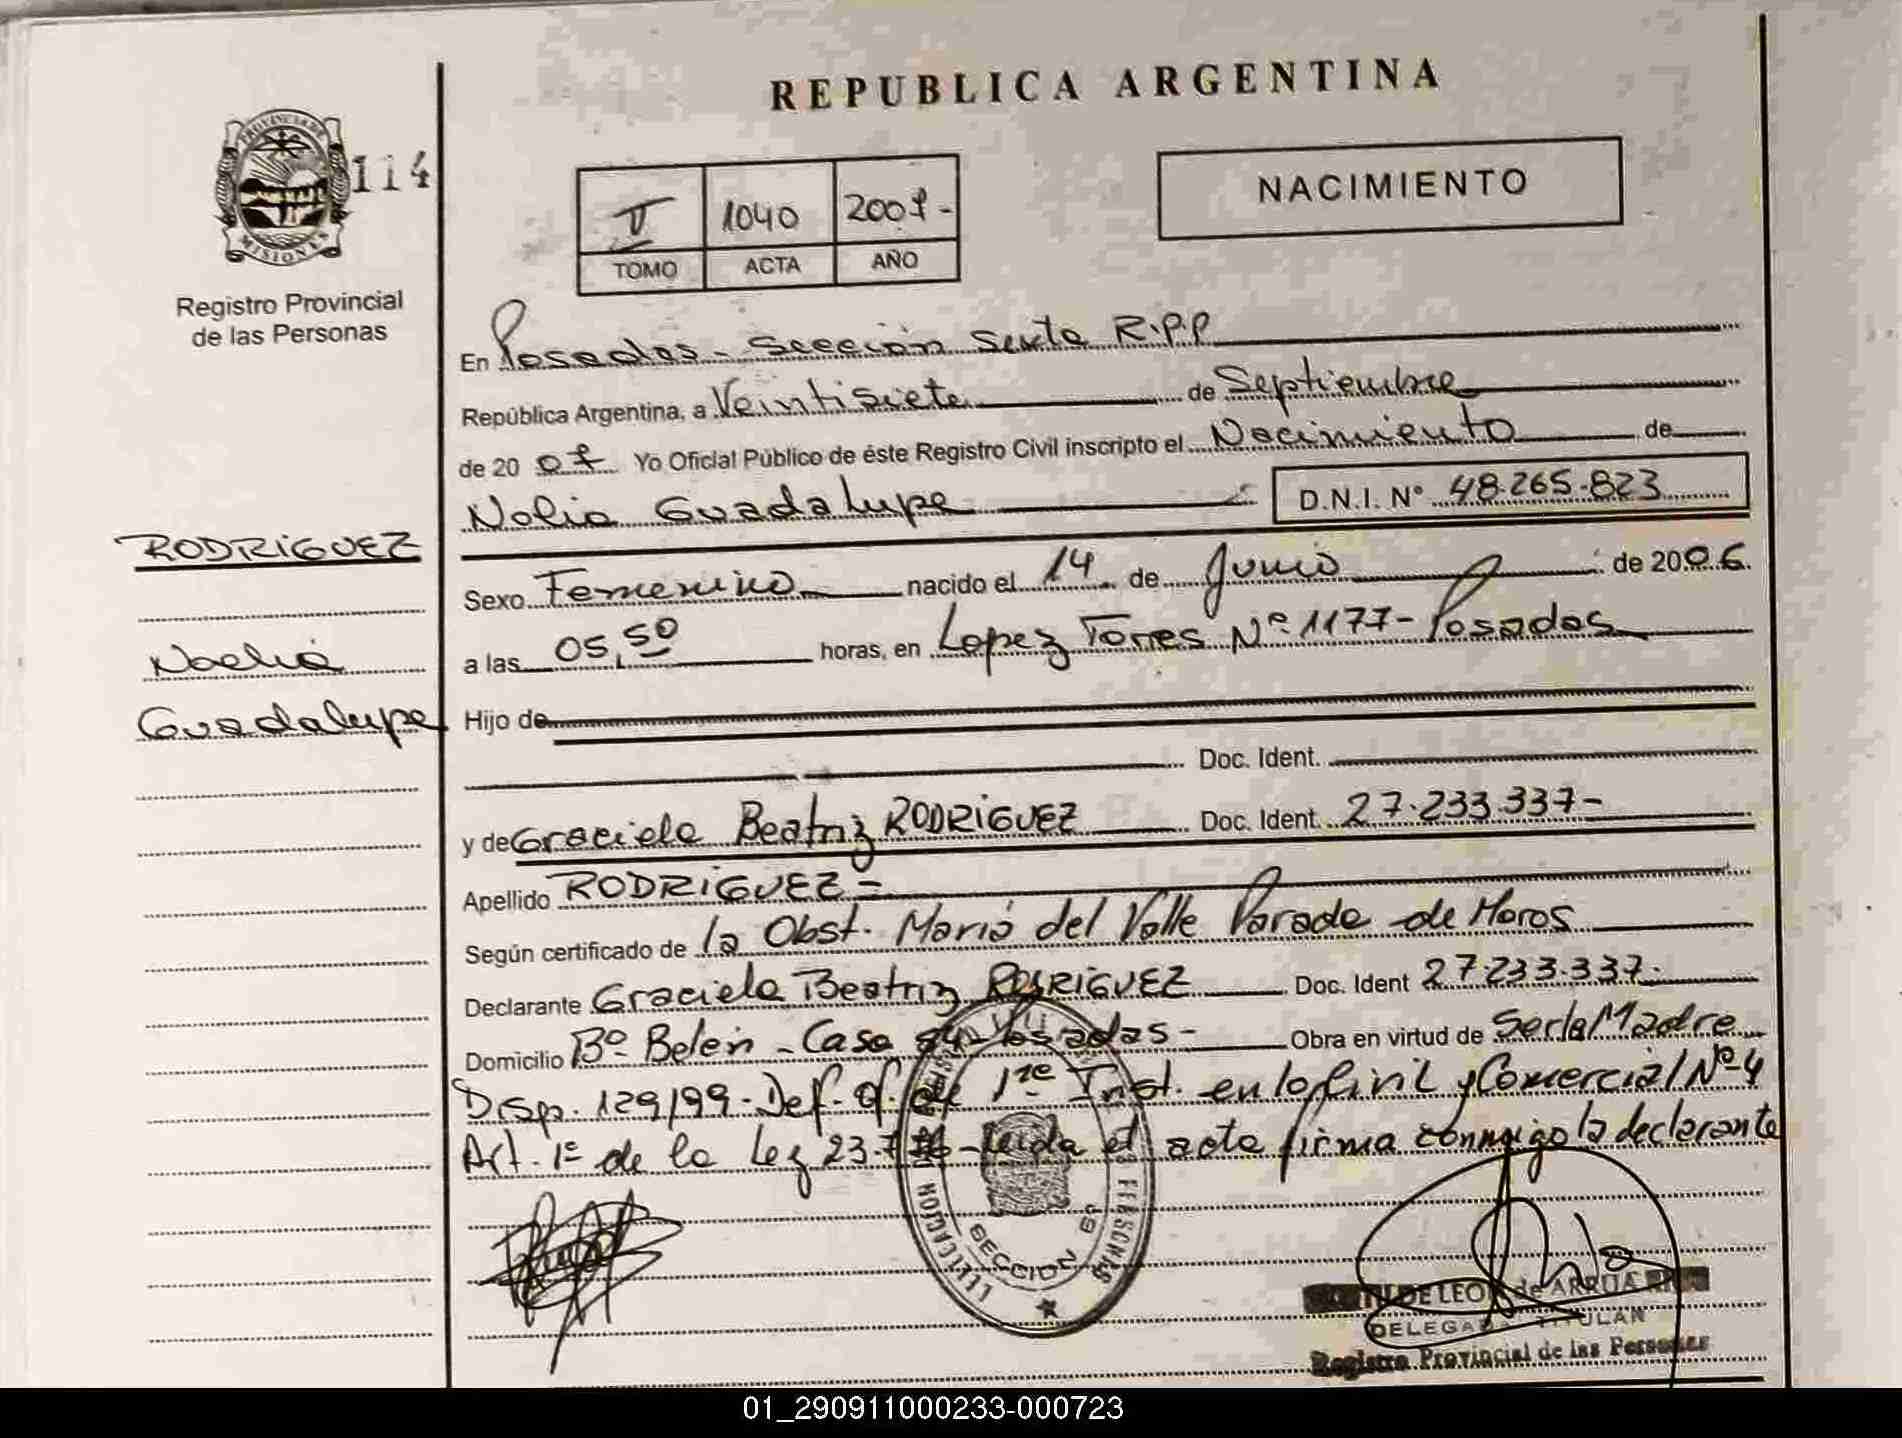 REPUBLICA ARGENTINA
PROVINCIA DE
MISIONES
114
Registro Provincial
de las Personas
II 1040 2007-
TOMO ACTA AÑO
NACIMIENTO
En Posadas - Sección Sexta R.P.P
República Argentina, a Veintisiete de Septiembre
de 20 07 Yo Oficial Público de éste Registro Civil inscripto el Nacimiento de
Nolia Guadalupe D.N.I. N° 48.265.823
RODRIGUEZ
Noelia
Guadalupe
Sexo Femenino nacido el 14 de Junio de 2006.
a las 05,50 horas, en Lopez Torres Nº 1177- Posadas
Hijo de
Doc. Ident.
y de Graciela Beatriz RODRIGUEZ Doc. Ident. 27.233.337-
Apellido RODRIGUEZ=
Según certificado de la Obst. Maria del Valle Parada de Moros
Declarante Graciela Beatriz RODRIGUEZ Doc. Ident 27.233.337.
Domicilio Bº Belén - Casa Posadas- Obra en virtud de Ser la Madre
Disp. 129/99- Def. Of. de 1re Inst. en lo Civil y Comercial Nº 4
Art. 1º de la Ley 23. -Leida el acta firma conmigo la declarante
SECCION 6º
DE LEON de ARRUA
DELEGADA TITULAR
Registro Provincial de las Personas
01_290911000233-000723